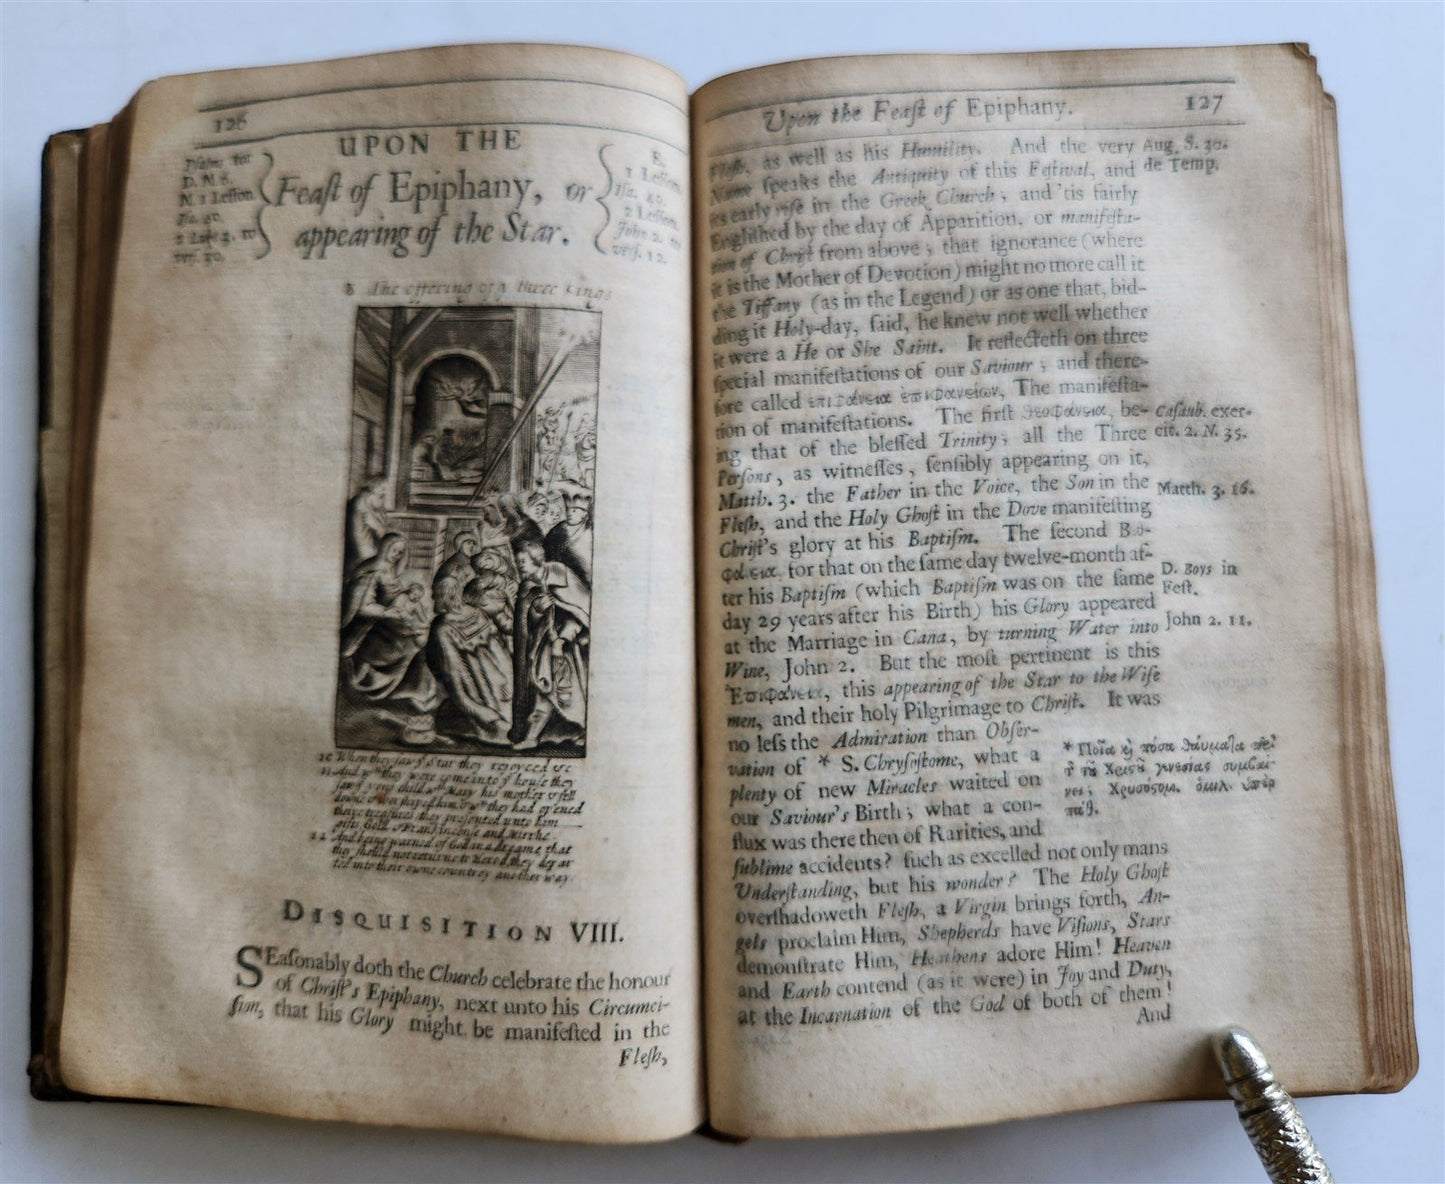 126
UPON THE
Feaſt of Epiphany, or
appearing of the Star.
D. M. 6.
M. 1 Leſſon.
Iſa. 60.
2 Luke 3. to
verſ. 23.
E.
1 Leſſon.
Iſa. 49.
2 Leſſon.
John 2. to
verſ. 12.
The offering of ye three Kings
10 When they ſaw ye Star they rejoyced &c
11 And wn they were come into ye houſe they
ſaw ye yong child wth Mary his mother & fell
down & worſhiped him & wn they had opened
there treaſures they preſented unto him
gifts Gold & Frankincenſe and Mirrhe.
12 And being warned of God in a dreame that
they ſhould not returne to Herod, they depar
ted into their owne countrey another way.
DISQUISITION VIII.
SEaſonably doth the Church celebrate the honour
of Chriſt's Epiphany, next unto his Circumci-
ſion, that his Glory might be manifeſted in the
Fleſh,
Upon the Feaſt of Epiphany. 127
Fleſh, as well as his Humility. And the very
Name ſpeaks the Antiquity of this Feſtival, and
its early riſe in the Greek Church; and 'tis fairly
Engliſhed by the day of Apparition, or manifeſta-
tion of Chriſt from above; that ignorance (where
it is the Mother of Devotion) might no more call it
the Tiffany (as in the Legend) or as one that, bid-
ding it Holy-day, ſaid, he knew not well whether
it were a He or She Saint. It reflecteth on three
ſpecial manifeſtations of our Saviour; and there-
fore called ἐπιφάνεια ἐπιφανειῶν, The manifeſta-
tion of manifeſtations. The firſt Θεοφάνεια, be-
ing that of the bleſſed Trinity; all the Three
Perſons, as witneſſes, ſenſibly appearing on it,
Matth. 3. the Father in the Voice, the Son in the
Fleſh, and the Holy Ghoſt in the Dove manifeſting
Chriſt's glory at his Baptiſm. The ſecond
for that on the ſame day twelve-month af-
ter his Baptiſm (which Baptiſm was on the ſame
day 29 years after his Birth) his Glory appeared
at the Marriage in Cana, by turning Water into
Wine, John 2. But the moſt pertinent is this
Ἐπιφάνεια, this appearing of the Star to the Wiſe
men, and their holy Pilgrimage to Chriſt. It was
no leſs the Admiration than Obſer-
vation of * S. Chryſoſtome, what a
plenty of new Miracles waited on
our Saviour's Birth; what a con-
flux was there then of Rarities, and
ſublime accidents? ſuch as excelled not only mans
Underſtanding, but his wonder? The Holy Ghoſt
overſhadoweth Fleſh, a Virgin brings forth, An-
gels proclaim Him, Shepherds have Viſions, Stars
demonſtrate Him, Heathens adore Him! Heaven
and Earth contend (as it were) in Joy and Duty,
at the Incarnation of the God of both of them!
And
Aug. S. 30.
de Temp.
Caſaub. exer-
cit. 2. N. 35.
Matth. 3. 16.
D. Boys in
Feſt.
John 2. 11.
* Ποῖα κ̀ πόσα θαύματα
Χριστοῦ γενεσίας συμβαι-
Χρυσοσομ. ὁμιλ.